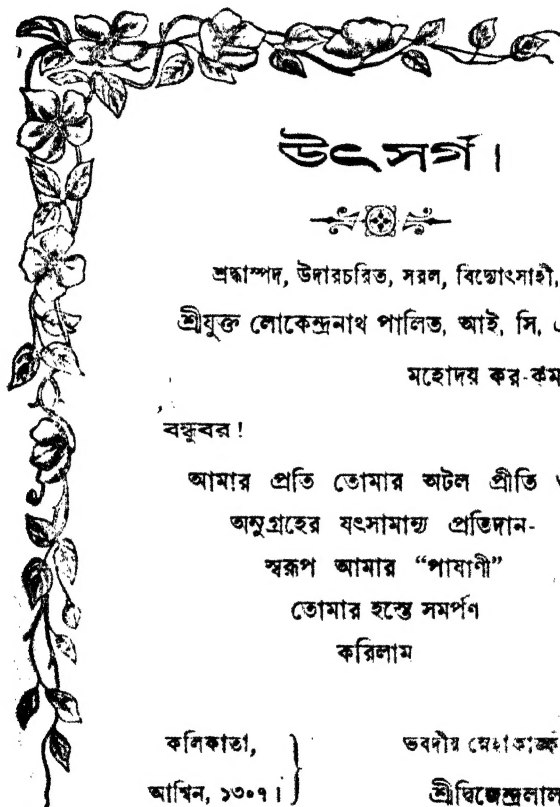 উৎসর্গ।
শ্রদ্ধাস্পদ, উদারচরিত, সরল, বিদ্যোৎসাহী,
শ্রীযুক্ত লোকেন্দ্রনাথ পালিত, আই, সি,
মহোদয় কর-কম
বন্ধুবর!
আমার প্রতি তোমার অটল প্রীতি
অনুগ্রহের যৎসামান্য প্রতিদান-
স্বরূপ আমার “পাষাণী”
তোমার হস্তে সমর্পণ
করিলাম
কলিকাতা,
আশ্বিন, ১৩০৭।
ভবদীয় স্নেহাকাঙ্ক্ষ
শ্রীদ্বিজেন্দ্রলাল